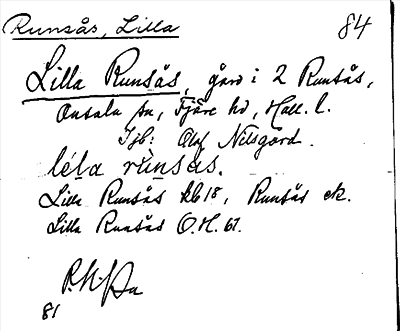 Runsås, Lilla 84
Lilla Runsås, gård i 2 Runsås,
Onsala sn, Fjäre hd, Hall. l.
Ijb: Olof Nilsgård.
léla rùnsås.
Lilla Runsås kb 18, Runsås ek.
Lilla Runsås O.H. 61.
81